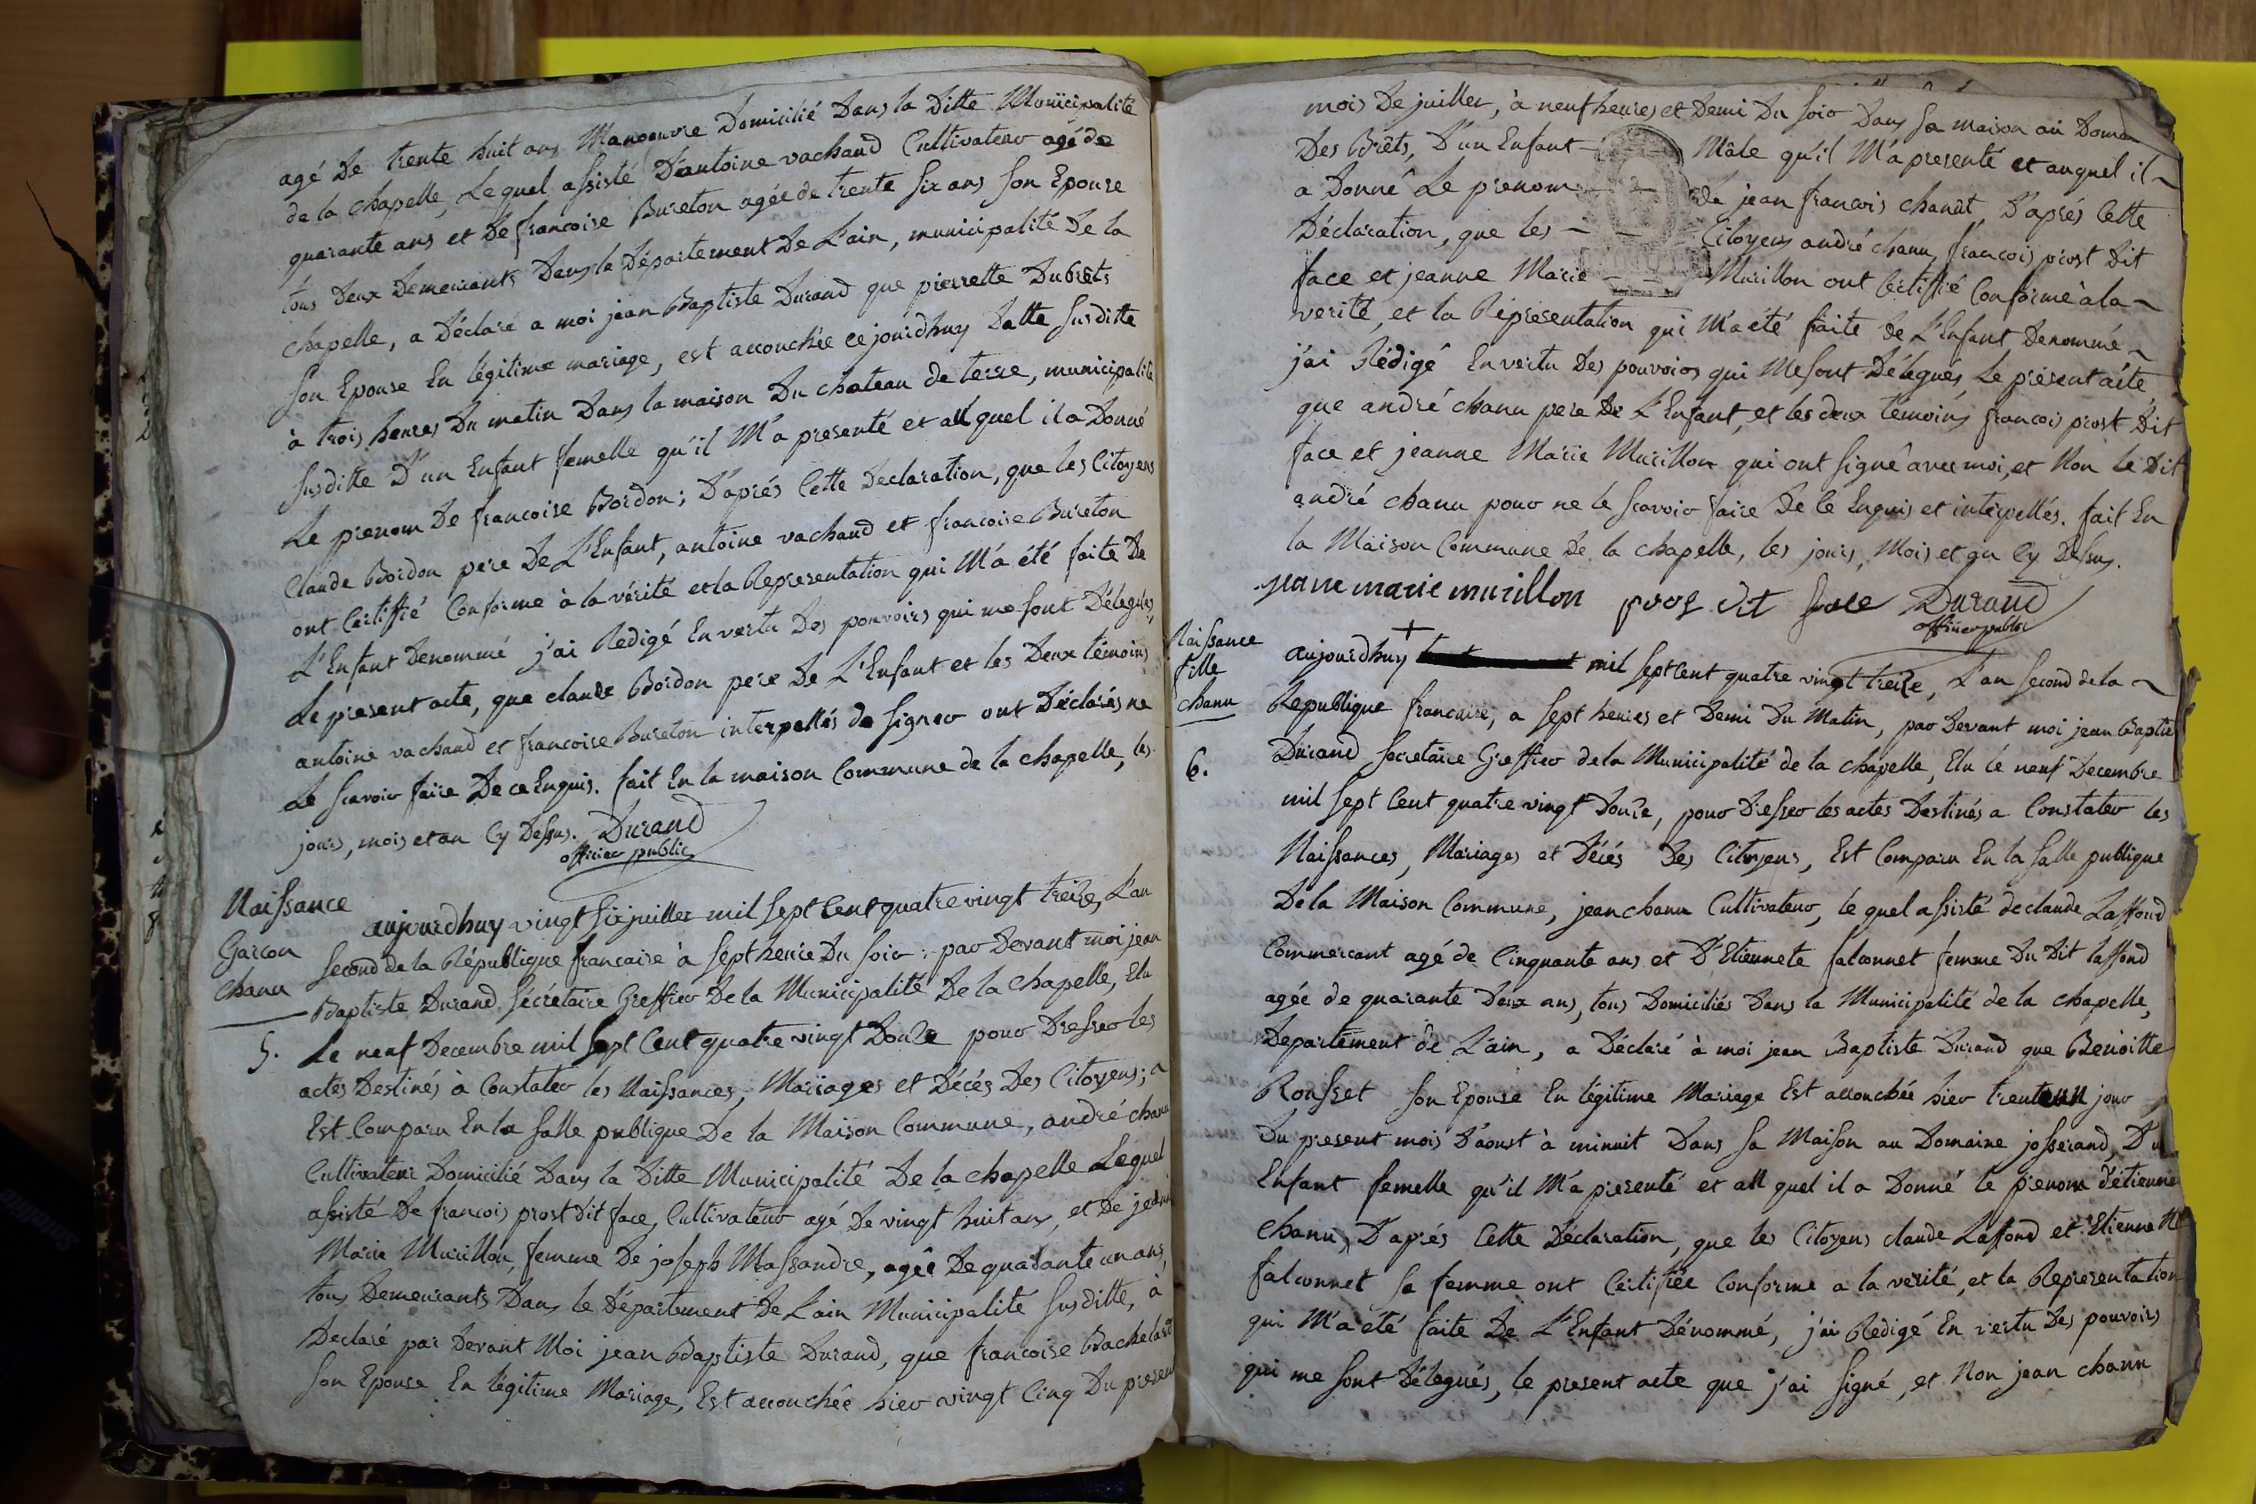 agé De trente huit ans Manoeuvre Domicilié Dans la Ditte Municipalité
de la chapelle, Lequel assisté D'antoine vachaud Cultivateur agé de
quarante ans et De francoise Bureton agée de trente six ans son Epouse
tous Deux Demeurants Dans le Département De L'ain, municipalité De la
chapelle, a Déclaré a moi jean Baptiste Durand que pierrette Dubrets
son Epouse En légitime mariage, est accouchée ce jourdhuy Datte susditte
à trois heures Du matin Dans la maison Du chateau de terre, municipalité
susditte D'un Enfant femelle qu'il M'a presenté et auquel il a Donné
Le prenom De francoise Bordon; D'aprés Cette Declaration, que les Citoyens
Claude Bordon pere De L'Enfant, antoine vachaud et francoise Bureton
ont Certiffié Conforme à la vérité et la Representation qui M'a été faite De
L'Enfant Denommé j'ai Redigé En vertu Des pouvoirs qui me sont Délegués,
Le present acte, que claude Bordon pere De L'Enfant et les Deux témoins
antoine vachaud et francoise Bureton interpellés de signer ont Déclarés ne
Le scavoir faire De ce Enquis. fait En la maison Commune de la chapelle, les
jours, mois et an Cy Dessus. Durand
officier public
Naissance
Garcon
chanu
5.
aujourdhuy vingt six juillet mil sept Cent quatre vingt treize, L'an
second de la République francaise à sept heure Du soir: par Devant moi jean
Baptiste Durand sécrétaire Greffier De la Municipalité De la chapelle, Elu
Le neuf Decembre mil sept Cent quatre vingt Douze pour Dresser les
actes Destinés à Constater les Naissances, Mariages et Décés Des Citoyens;
Est Comparu En la salle publique De la Maison Commune, andré chanu
Cultivateur Domicilié Dans la Ditte Municipalité De la chapelle Lequel
assisté De francois prost dit face, Cultivateur agé De vingt huit ans, et De jeanne
Marie Murillon, femme De joseph Massandre, agée De quarante un ans,
tous Demeurants Dans le Département De L'ain Municipalité susditte, à
Declaré par Devant Moi jean Baptiste Durand, que francoise Bachelard
son Epouse En légitime Mariage, Est accouchée hier vingt Cinq Du present
mois De juillet, à neuf heures et Demi Du soir Dans sa maison au Domaine
Des Brêts, D'un Enfant Mâle qu'il M'a presenté et auquel il
a Donné Le prenom De jean francois chanut, D'aprés Cette
Déclaration, que les Citoyens andré chanu, francois prost Dit
face et jeanne Marie Murillon ont Certiffié Conforme à la
verité, et la Representation qui M'a été faite De L'Enfant Denommé
j'ai Rédigé En vertu Des pouvoirs qui Me sont Délegués Le présent acte
que andré chanu pere De L'Enfant, et les deux témoins francois prost Dit
face et jeanne Marie Murillon qui ont signé avec moi, et Non le Dit
andré chanu pour ne le scavoir faire De Ce Enquis et interpellés. fait En
la Maison Commune De la chapelle, les jours, Mois et an Cy Dessus.
jeanne marie murillon prost dit face Durand
officier public
Naissance
fille
chanu
6.
aujourdhuy mil sept Cent quatre vingt treize, L'an second de la
Republique francaise, a sept heures et Demi Du Matin, par Devant moi jean Baptiste
Durand secretaire Greffier de la Municipalité de la chapelle, Elu le neuf Decembre
mil sept Cent quatre vingt Douze, pour Dresser les actes Destinés a Constater les
Naissances, Mariages et Décés Des Citoyens, Est Comparu En la salle publique
De la Maison Commune, jean chanu Cultivateur, le quel assisté de claude Laffond
Commercant agé de Cinquante ans et D'Etiennete falconnet femme Du Dit laffond
agée de quarante Deux ans, tous Domiciliés Dans la Municipalité de la chapelle,
Departement De L'ain, a Déclaré à moi jean Baptiste Durand que Benoitte
Rousset son Epouse En légitime Mariage Est accouchée hier trente un jour
Du present mois D'aoust à minuit Dans sa Maison au Domaine josserand, D'un
Enfant femelle qu'il M'a presenté et auquel il a Donné le prenom d'étienne
chanu, D'aprés Cette Déclaration, que les Citoyens claude Laffond et Etienne
falconnet sa femme ont Certifiée Conforme a la verité, et la Representation
qui M'a été faite De L'Enfant Dénommé, j'ai Redigé En vertu Des pouvoirs
qui me sont Délegués, le present acte que j'ai signé, et Non jean chanu